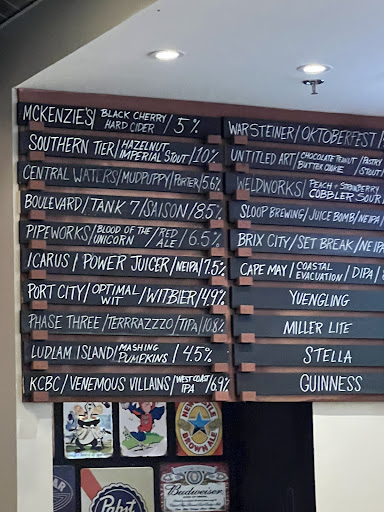 MCKENZIE'S/ BLACK CHERRY HARD CIDER / 5%
SOUTHERN TIER/ HAZELNUT IMPERIAL STOUT / 10%
CENTRAL WATERS/ MUDPUPPY / PORTER / 5.6%
BOULEVARD / TANK 7 / SAISON / 8.5%
PIPEWORKS / BLOOD OF THE UNICORN / RED ALE / 6.5%
ICARUS / POWER JUICER / NEIPA / 7.5%
PORT CITY / OPTIMAL WIT / WITBIER / 4.9%
PHASE THREE / TERRRAZZZO / TIPA / 10.8%
LUDLAM ISLAND / MASHING PUMPKINS / 4.5%
KCBC / VENEMOUS VILLAINS / WEST COAST IPA / 6.9%
WARSTEINER / OKTOBERFEST /
UNTITLED ART / CHOCOLATE PEANUT BUTTER CAKE / PASTRY STOUT
WELDWORKS / PEACH & STRAWBERRY COBBLER SOUR
SLOOP BREWING / JUICE BOMB / NEIPA
BRIX CITY / SET BREAK / NEIPA
CAPE MAY / COASTAL EVACUATION / DIPA / 8
YUENGLING
MILLER LITE
STELLA
GUINNESS
NEWCASTLE
BROWN ALE
Pabst
Budweiser